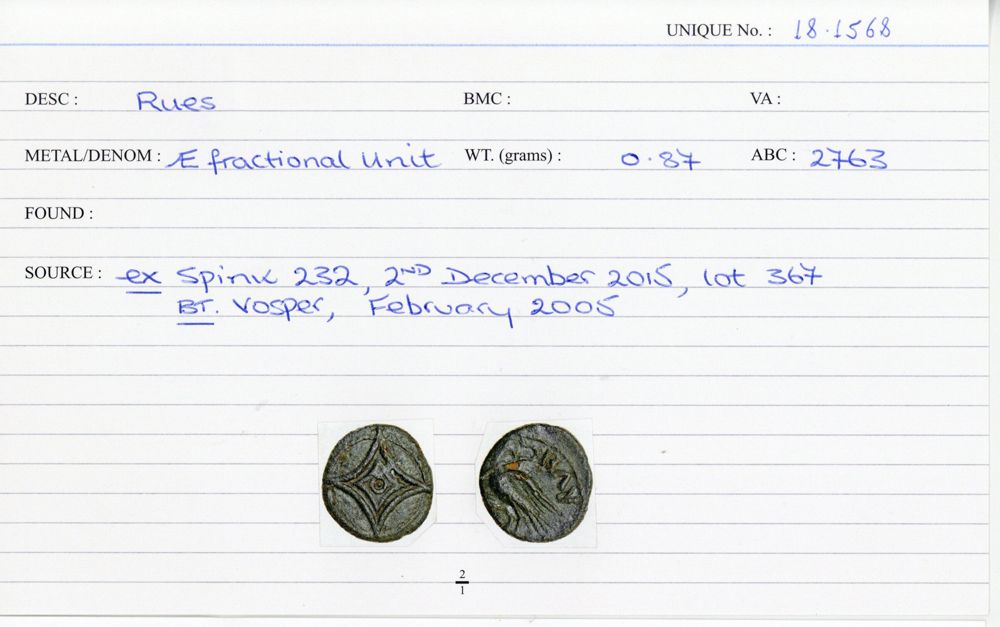 UNIQUE No. : 18.1568
DESC : Rues BMC : VA :
METAL/DENOM : Æ fractional Unit WT. (grams) : 0.87 ABC : 2763
FOUND :
SOURCE : ex Spink 232, 2ND December 2015, lot 367
BT. Vosper, February 2005
2
1